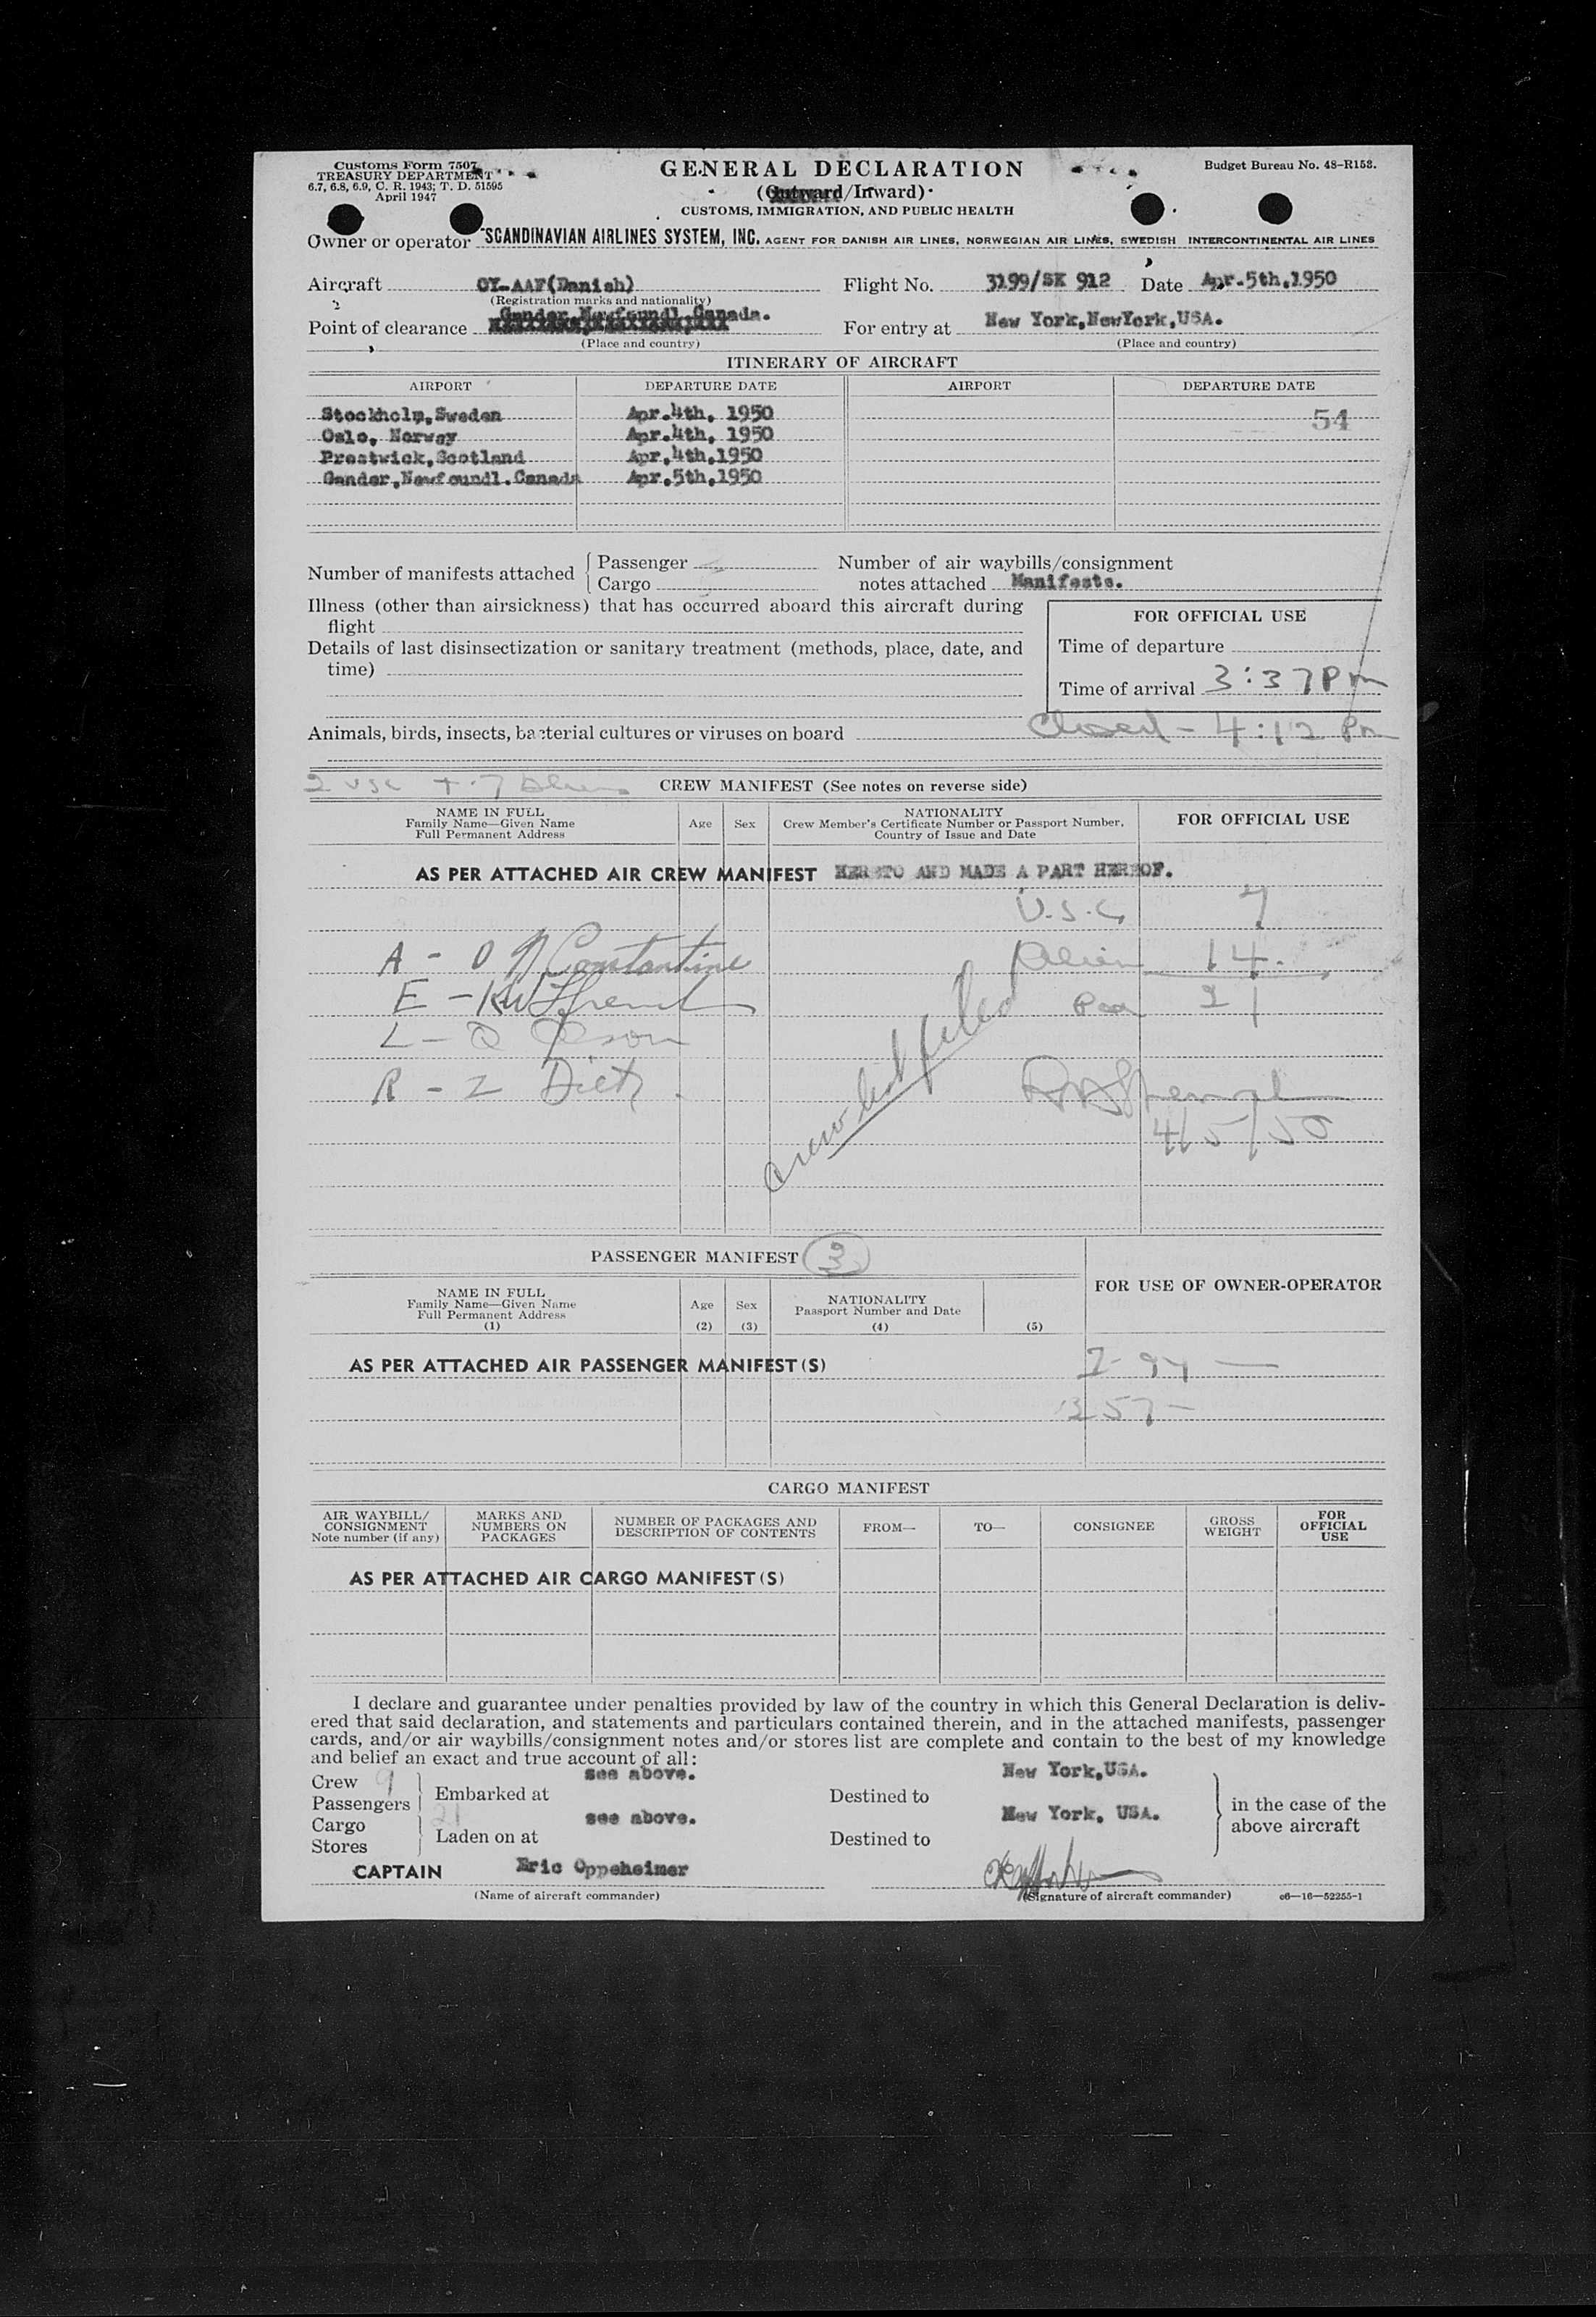 Customs Form 7507
TREASURY DEPARTMENT
6.7, 6.8, 6.9, C. R. 1943; T. D. 51595
April 1947
GENERAL DECLARATION
(Outward/Inward)
CUSTOMS, IMMIGRATION, AND PUBLIC HEALTH
Budget Bureau No. 48-R158.
Owner or operator SCANDINAVIAN AIRLINES SYSTEM, INC. AGENT FOR DANISH AIR LINES, NORWEGIAN AIR LINES, SWEDISH INTERCONTINENTAL AIR LINES
Aircraft OY-AAF(Danish) Flight No. 3199/SK 912 Date Apr.5th,1950
(Registration marks and nationality)
Point of clearance Gander,Newfoundl.Canada. For entry at New York,NewYork,USA.
(Place and country) (Place and country)
ITINERARY OF AIRCRAFT
AIRPORT DEPARTURE DATE AIRPORT DEPARTURE DATE
Stockholm,Sweden Apr.4th, 1950 54
Oslo, Norway Apr.4th, 1950
Prestwick,Scotland Apr.4th,1950
Gander,Newfoundl.Canada Apr.5th,1950
Number of manifests attached { Passenger
Cargo
Number of air waybills/consignment
notes attached Manifests.
Illness (other than airsickness) that has occurred aboard this aircraft during
flight
Details of last disinsectization or sanitary treatment (methods, place, date, and
time)
FOR OFFICIAL USE
Time of departure
Time of arrival 3:37 Pm
Closed - 4:12 Pm
Animals, birds, insects, bacterial cultures or viruses on board
2 USC + 7
CREW MANIFEST (See notes on reverse side)
NAME IN FULL
Family Name—Given Name
Full Permanent Address
Age Sex
NATIONALITY
Crew Member's Certificate Number or Passport Number,
Country of Issue and Date
FOR OFFICIAL USE
AS PER ATTACHED AIR CREW MANIFEST HERETO AND MADE A PART HEREOF.
U.S.C. 7
A - O N Constantine Alien 14
E - 21
L - Q Olson
R - Z Dietz
Crew list filed
4/5/50
PASSENGER MANIFEST 3
NAME IN FULL
Family Name—Given Name
Full Permanent Address
(1)
Age
(2)
Sex
(3)
NATIONALITY
Passport Number and Date
(4)
(5)
FOR USE OF OWNER-OPERATOR
AS PER ATTACHED AIR PASSENGER MANIFEST(S) I-94 —
257 -
CARGO MANIFEST
AIR WAYBILL/
CONSIGNMENT
Note number (if any)
MARKS AND
NUMBERS ON
PACKAGES
NUMBER OF PACKAGES AND
DESCRIPTION OF CONTENTS
FROM—
TO—
CONSIGNEE
GROSS
WEIGHT
FOR
OFFICIAL
USE
AS PER ATTACHED AIR CARGO MANIFEST(S)
I declare and guarantee under penalties provided by law of the country in which this General Declaration is deliv-
ered that said declaration, and statements and particulars contained therein, and in the attached manifests, passenger
cards, and/or air waybills/consignment notes and/or stores list are complete and contain to the best of my knowledge
and belief an exact and true account of all:
Crew 9
Passengers 21
Embarked at see above. Destined to New York,USA.
Cargo
Stores
Laden on at see above. Destined to New York, USA.
in the case of the
above aircraft
CAPTAIN Eric Oppeheimer
(Name of aircraft commander) (Signature of aircraft commander) c6—16—52255-1